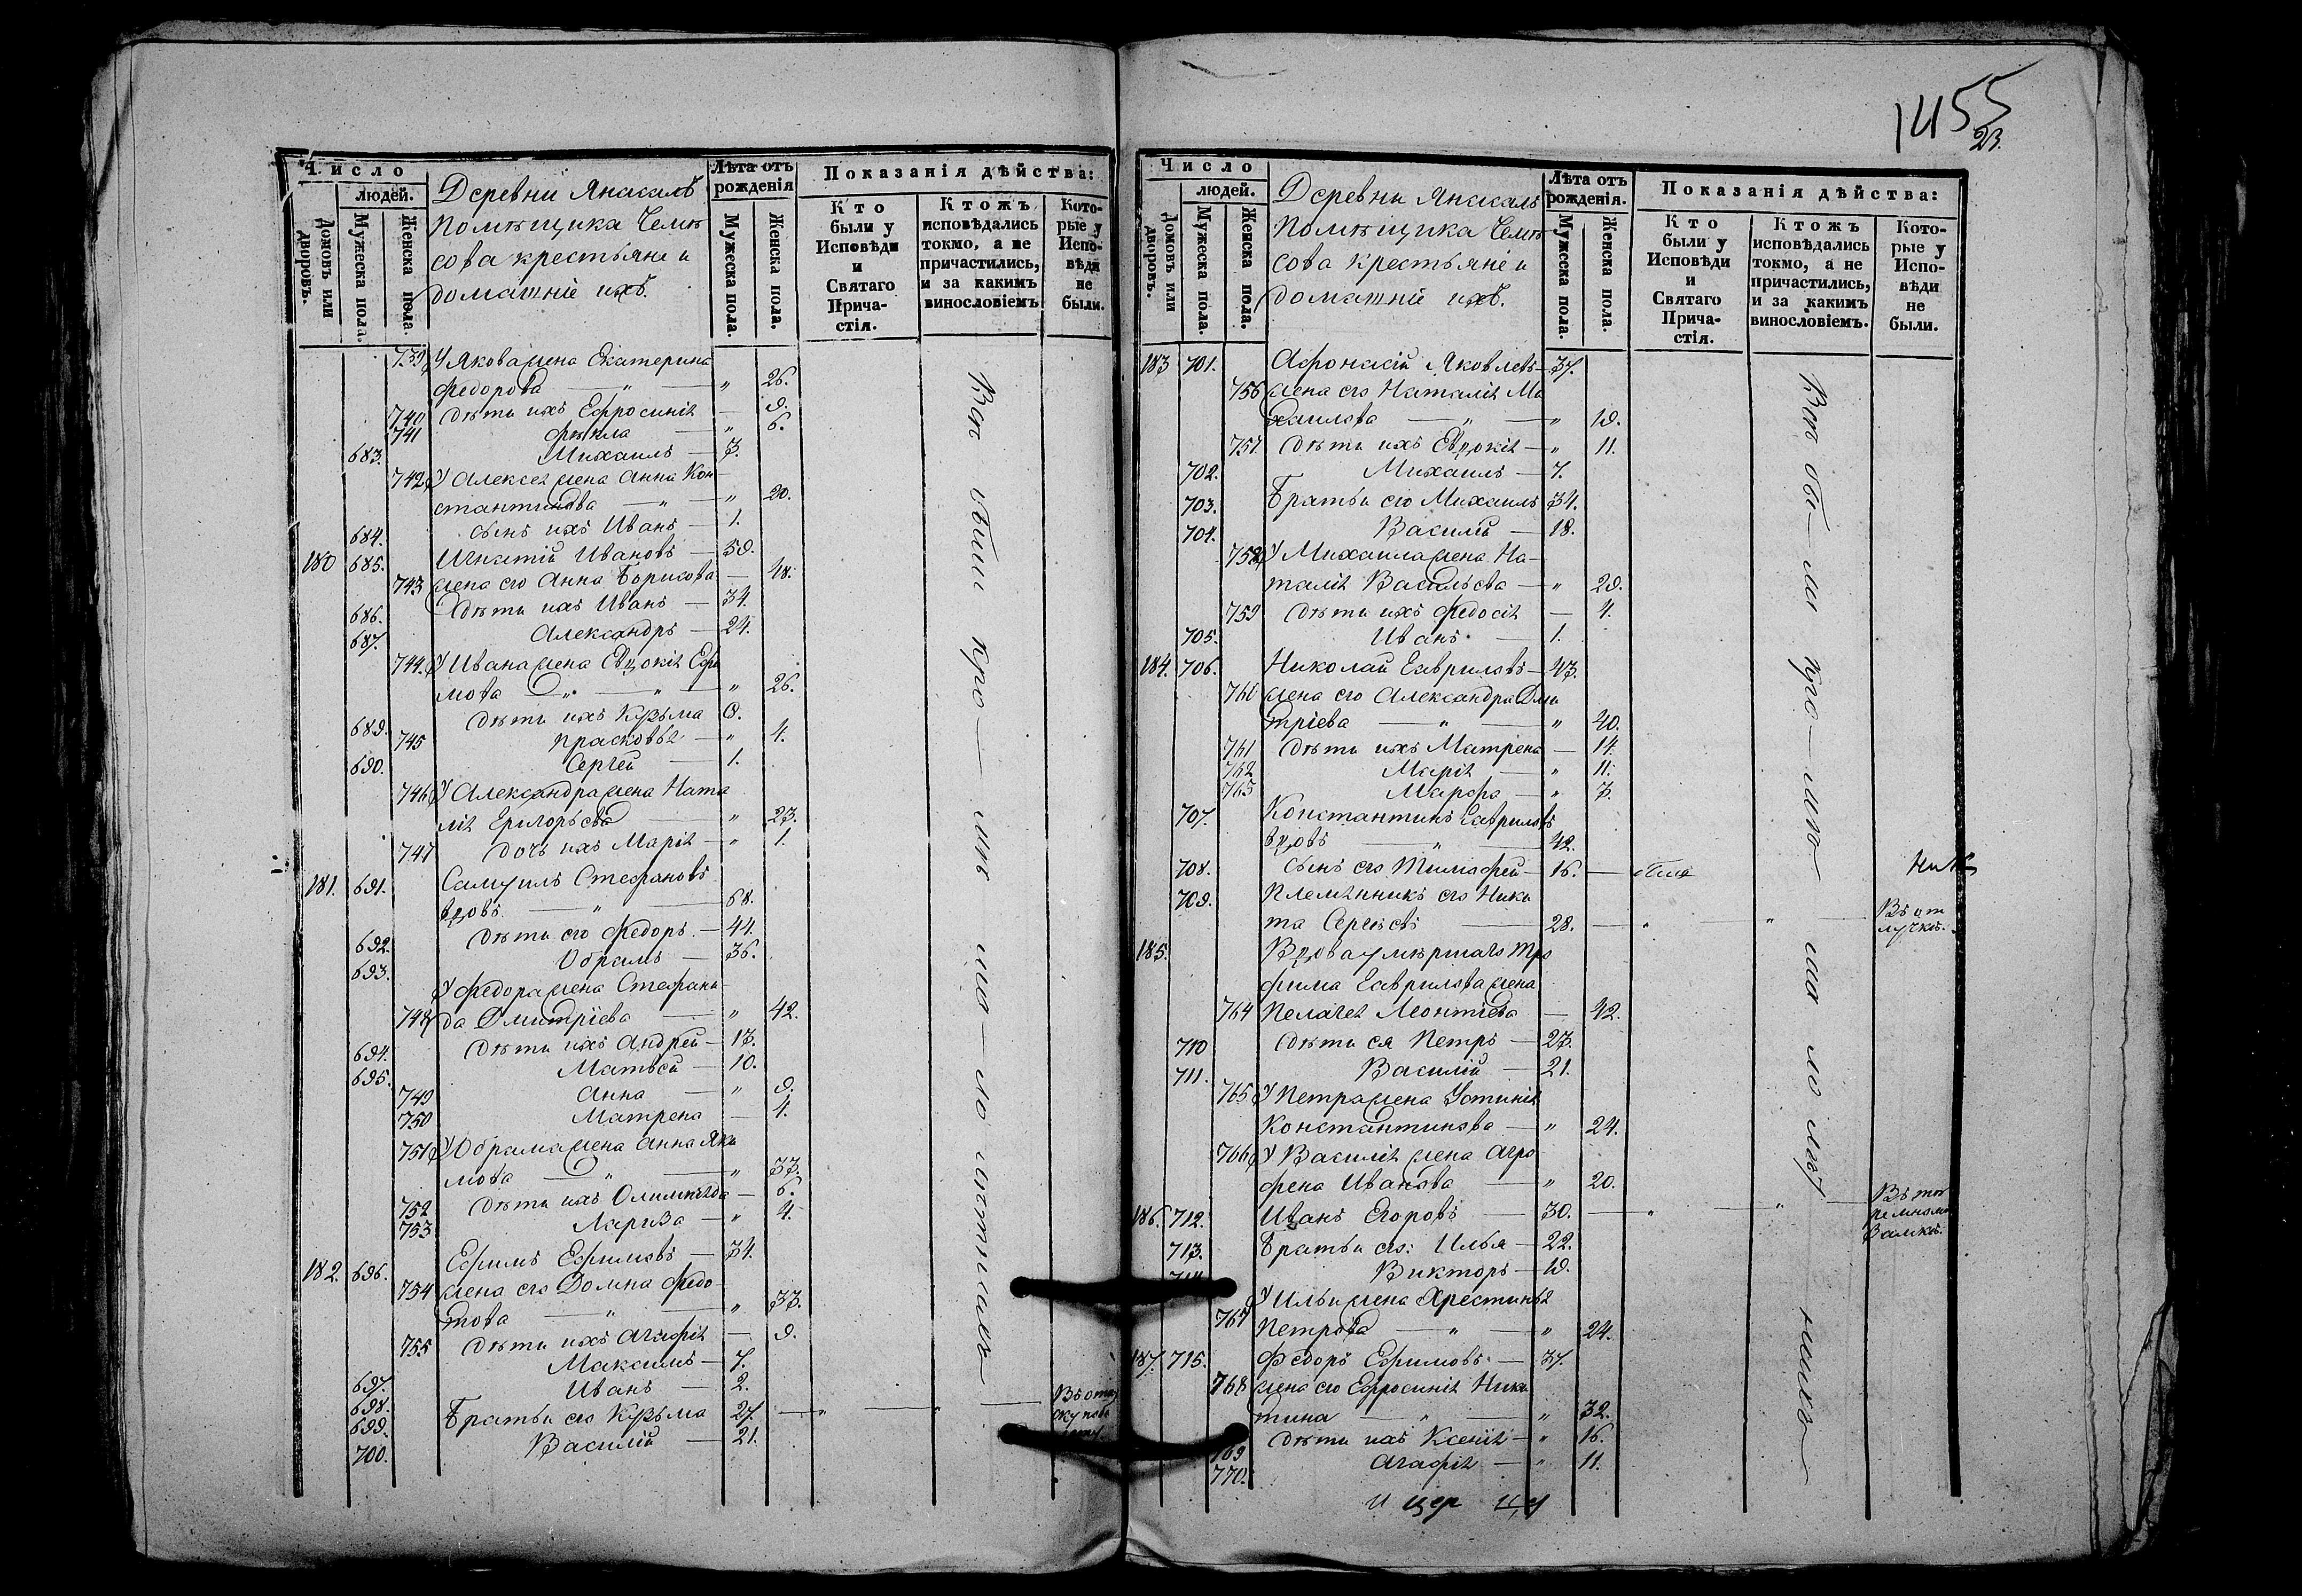 1455
23.
Число
людей.
Домовъ или дворовъ.
Мужеска пола.
Женска пола.
Деревни Янасалъ
помѣщика Челю
сова крестьяне и
домашніе ихъ.
Лѣта отъ рожденія
Мужеска пола.
Женска пола.
Показанія дѣйства:
Кто были у Исповѣди и Святаго Причастія.
Ктожъ исповѣдались токмо, а не причастились, и за какимъ винословіемъ
Которые у Исповѣди не были.
739 У Якова жена Екатерина
Федорова — " — " 26.
740 дѣти ихъ Ефросинія — 9.
741 Фекла — " 6.
683. Михаилъ — 3.
742 У Алексея жена Анна Кон
стантинова — " — " 20.
684. сынъ ихъ Иванъ — 1.
180 685. Игнатій Ивановъ — 59.
743 жена его Анна Борисова — 48.
686. Дѣти ихъ Иванъ — 34.
687. Александръ — 24.
744. У Ивана жена Евдокія Ефи
мова — " — " — " 26.
689. дѣти ихъ Кузьма 9.
745 Прасковья — " 4.
690. Сергей — 1.
746 У Александра жена Ната
лія Григорьева — " 23.
747 дочь ихъ Марія — " 1.
181. 691. Самуилъ Стефановъ
вдовъ. — " — 68.
692. дѣти его Федоръ. — 44.
693. Абрамъ — 36.
У Федора жена Стефани
748 да Дмитріева — " 42.
694. дѣти ихъ Андрей — 13.
695. Матвей — 10.
749 Анна — " 9.
750 Матрена — 4.
751 У Абрама жена Анна Яки
мова — " — " 33.
752 дѣти ихъ Олимпіада — 6.
753 Лариза — " 4.
182. 696. Ефимъ Ефимовъ — 34.
754 жена его Домна Федо
това — " — " 33.
755 дѣти ихъ Агафія — 9.
697. Максимъ — 7.
698. Иванъ — 2.
699. Братьи его Кузьма 27. — " — " —
700. Василій — 21.
Число
людей.
Домовъ или дворовъ.
Мужеска пола.
Женска пола.
Деревни Янасалъ
помѣщика Челю
сова крестьяне и
домашніе ихъ.
Лѣта отъ рожденія.
Мужеска пола.
Женска пола.
Показанія дѣйства:
Кто были у Исповѣди и Святаго Причастія.
Ктожъ исповѣдались токмо, а не причастились, и за какимъ винословіемъ.
Которые у Исповѣди не были.
183 701. Афонасій Яковлевъ — 37.
756 жена его Наталія Ми
хаилова — " — " 19.
757 дѣти ихъ Евдокія — " 11.
702. Михаилъ — 7.
703. Братьи его Михаилъ 34.
704. Василій — 18.
758 У Михаила жена На-
талія Васильева — " 29.
759 дѣти ихъ Федосія — 4.
705. Иванъ. — 1.
184. 706. Николай Гавриловъ — 43.
760 жена его Александра Дми
тріева — " — " 40.
761 дѣти ихъ Матрена — 14.
762 Марія — " 11.
763 Марфа — " 3.
707. Константинъ Гавриловъ
вдовъ — " — 42.
708. сынъ его Тимофей — 16. — были
709. Племянникъ его Ники
та Сергѣевъ — 28. — " — " — Въ от
лучкѣ.
185. Вдова умершаго Тро
фима Гаврилова жена
764 Пелагея Леонтіева — 42.
710 дѣти ея Петръ — 23.
711. Василій — 21.
765 У Петра жена Устинія
Константинова — " 24.
766 У Василія жена Агро
фена Иванова — " 20.
186. 712. Иванъ Егоровъ — 30. — " — " — Въ тю
ремномъ
замкѣ.
713. Братьи его: Илья — 22.
714. Викторъ — 19.
У Ильи жена Христинья
767 Петрова — " — " 24.
187. 715. Федоръ Ефимовъ. — 37.
768 жена его Ефросинія Ники
тина — " — " 32.
769 дѣти ихъ Ксенія — " 16.
770. Агафія — " 11.